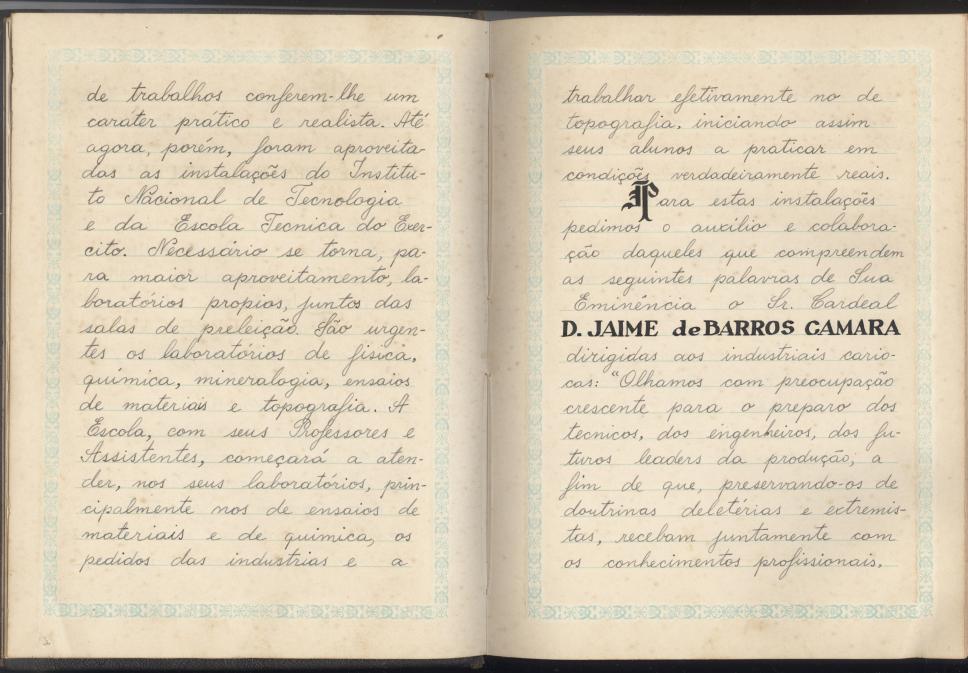 de trabalhos conferem-lhe um
carater prático e realista. Até
agora, porém, foram aproveita-
das as instalações do Institu-
to Nacional de Tecnologia
e da Escola Tecnica do Exer-
cito. Necessário se torna, pa-
ra maior aproveitamento, la-
boratórios propios, juntos das
salas de preleição. São urgen-
tes os laboratórios de fisica,
química, mineralogia, ensaios
de materiais e topografia. A
Escola, com seus Professores e
Assistentes, começará a aten-
der, nos seus laboratórios, prin-
cipalmente nos de ensaios de
materiais e de quimica, os
pedidos das industrias e a
trabalhar efetivamente no de
topografia, iniciando assim
seus alunos a praticar em
condições verdadeiramente reais.
Para estas instalações
pedimos o auxílio e colabora-
ção daqueles que compreendem
as seguintes palavras de Sua
Eminência o Sr. Cardeal
D. JAIME de BARROS CAMARA
dirigidas aos industriais cario-
cas: "Olhamos com preocupação
crescente para o preparo dos
tecnicos, dos engenheiros, dos fu-
turos leaders da produção, a
fim de que, preservando-os de
doutrinas deletérias e extremis-
tas, recebam juntamente com
os conhecimentos profissionais,